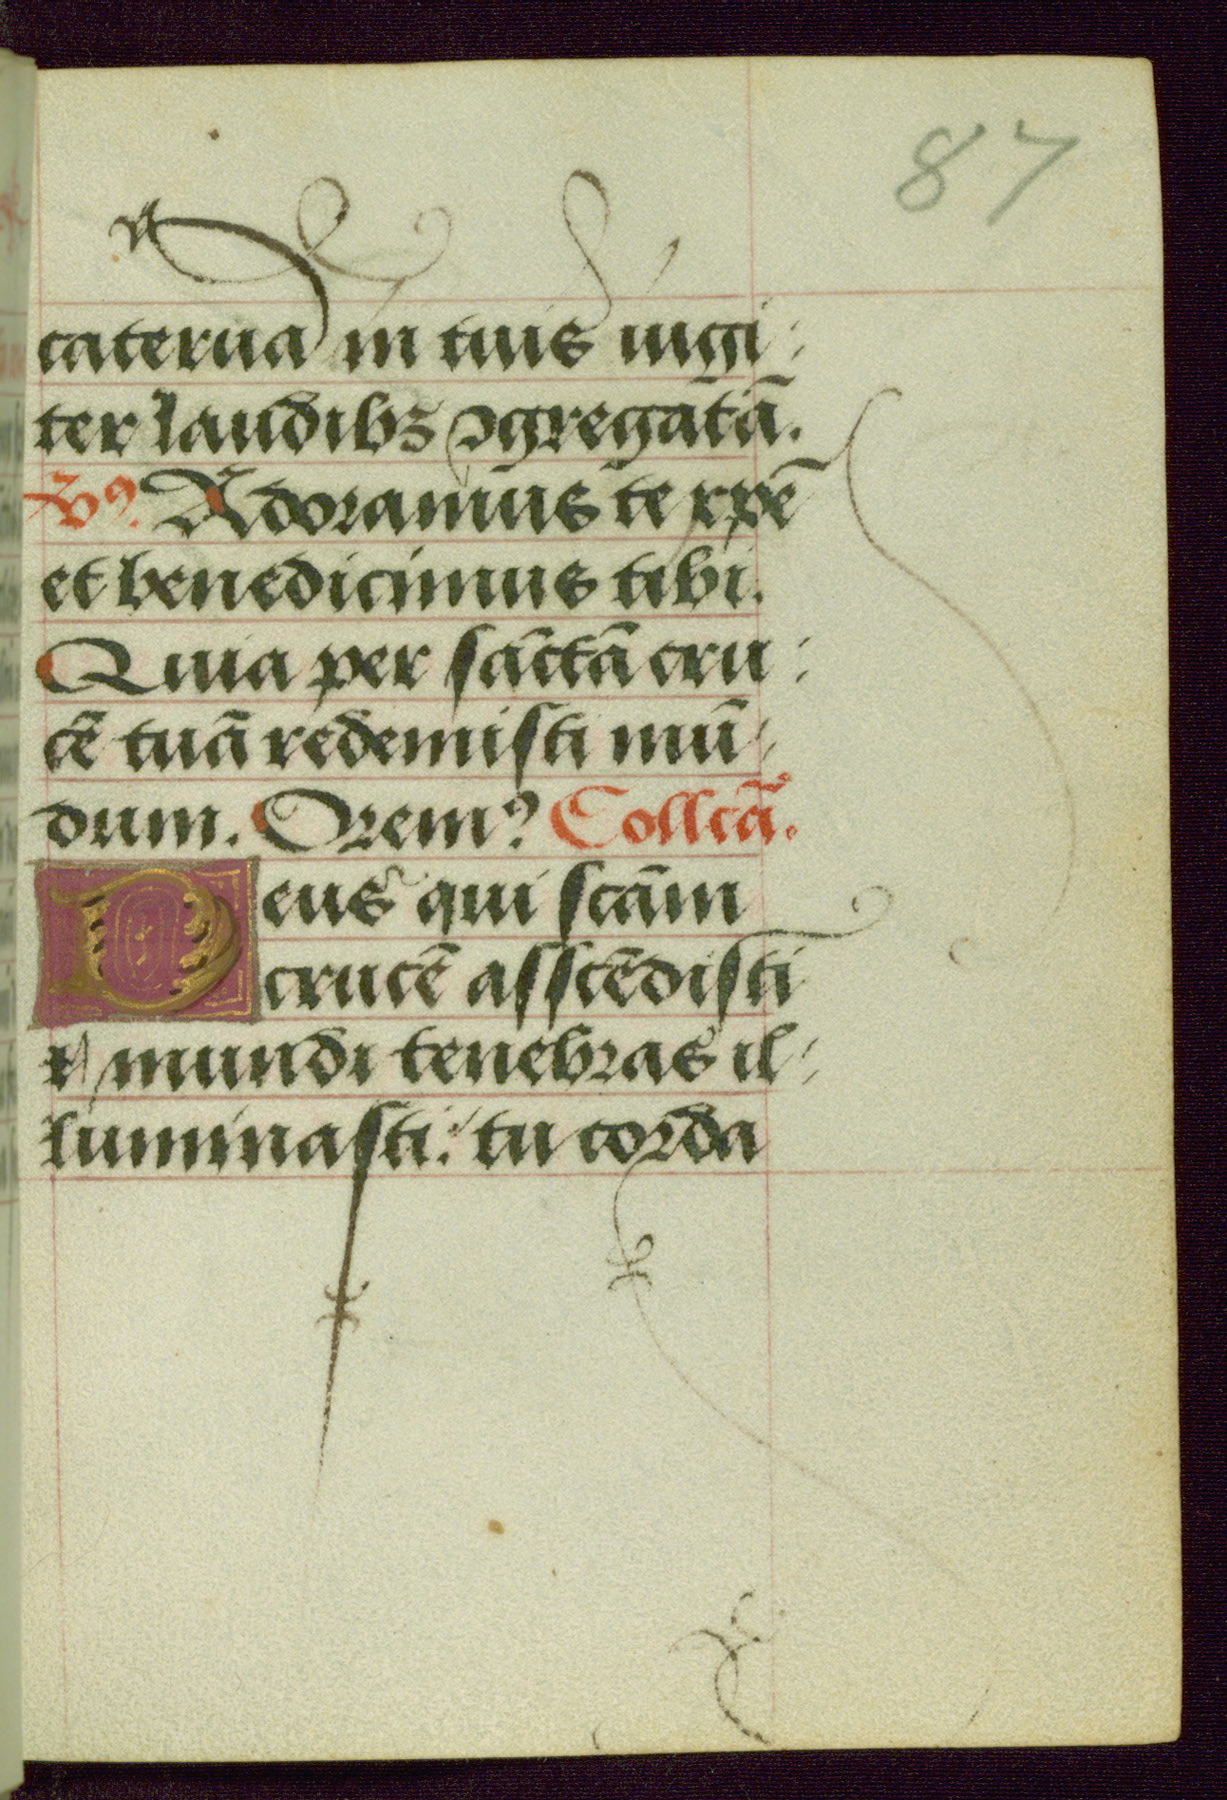 87
caterua in tuis iugi:
ter laudibꝫ ꝯgregatā.
Vꝰ. Adoramus te xpē
et benedicimus tibi.
Quia per sāctā cru:
cē tuā redemisti mū:
dum. Oremꝰ Collcā.
Deus qui scām
crucē asscēdisti
⁊ mundi tenebras il:
luminasti: tu corda